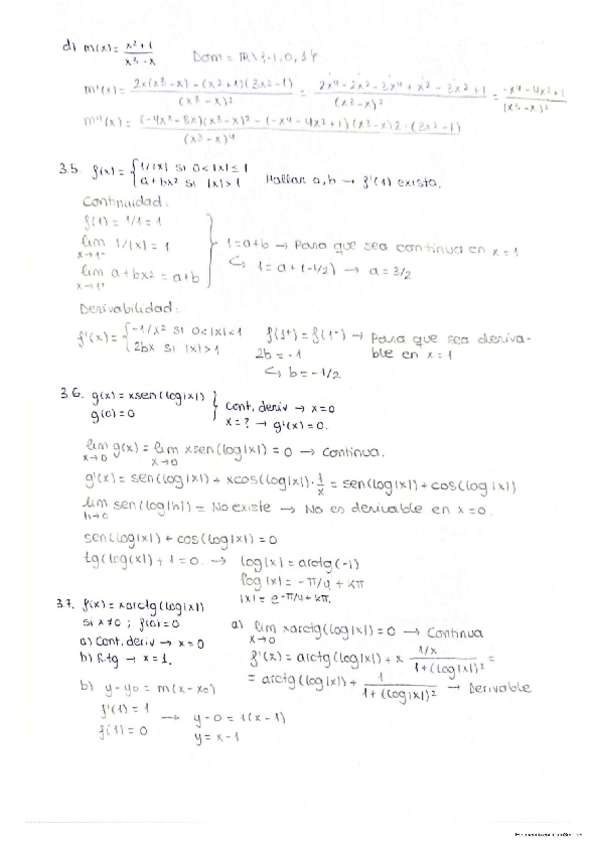 d) m(x) = x²+1 / x³-x    Dom = ℝ\{-1,0,1}
m'(x) = 2x(x³-x) - (x²+1)(3x²-1) / (x³-x)² = 2x⁴ - 2x² - 3x⁴ + x² - 3x² + 1 / (x³-x)² = -x⁴ - 4x² + 1 / (x³-x)²
m''(x) = (-4x³-8x)(x³-x)² - (-x⁴-4x²+1)(x³-x)2·(3x²-1) / (x³-x)⁴
3.5. f(x) = { 1/|x| si 0<|x|≤1
a+bx² si |x|>1    Hallar a,b → f'(1) exista.
Continuidad:
f(1) = 1/1 = 1
lim x→1⁻ 1/|x| = 1    } 1=a+b → Para que sea continua en x=1
lim x→1⁺ a+bx² = a+b    ↪ 1=a+(-1/2) → a=3/2
Derivabilidad:
f'(x) = { -1/x² si 0<|x|<1    f(1⁺) = f(1⁻) → Para que sea deriva-
2bx si |x|>1    2b = -1    ble en x=1
↪ b = -1/2
3.6. g(x) = xsen(log|x|) } Cont, deriv → x=0
g(0) = 0    x=? → g'(x)=0.
lim x→0 g(x) = lim x→0 xsen(log|x|) = 0 → Continua.
g'(x) = sen(log|x|) + xcos(log|x|)·1/x = sen(log|x|) + cos(log|x|)
lim h→0 sen(log|h|) = No existe → No es derivable en x=0.
sen(log|x|) + cos(log|x|) = 0
tg(log|x|) + 1 = 0. → log|x| = arctg(-1)
log|x| = -π/4 + kπ
|x| = e^-π/4+kπ.
3.7. f(x) = xarctg(log|x|)
si x≠0 ; f(0)=0
a) Cont, deriv → x=0
b) R.tg → x=1.
a) lim x→0 xarctg(log|x|) = 0 → Continua
f'(x) = arctg(log|x|) + x 1/x / 1+(log|x|)² =
= arctg(log|x|) + 1 / 1+(log|x|)² → Derivable
b) y-y₀ = m(x-x₀)
f'(1) = 1 → y-0 = 1(x-1)
f(1) = 0    y = x-1